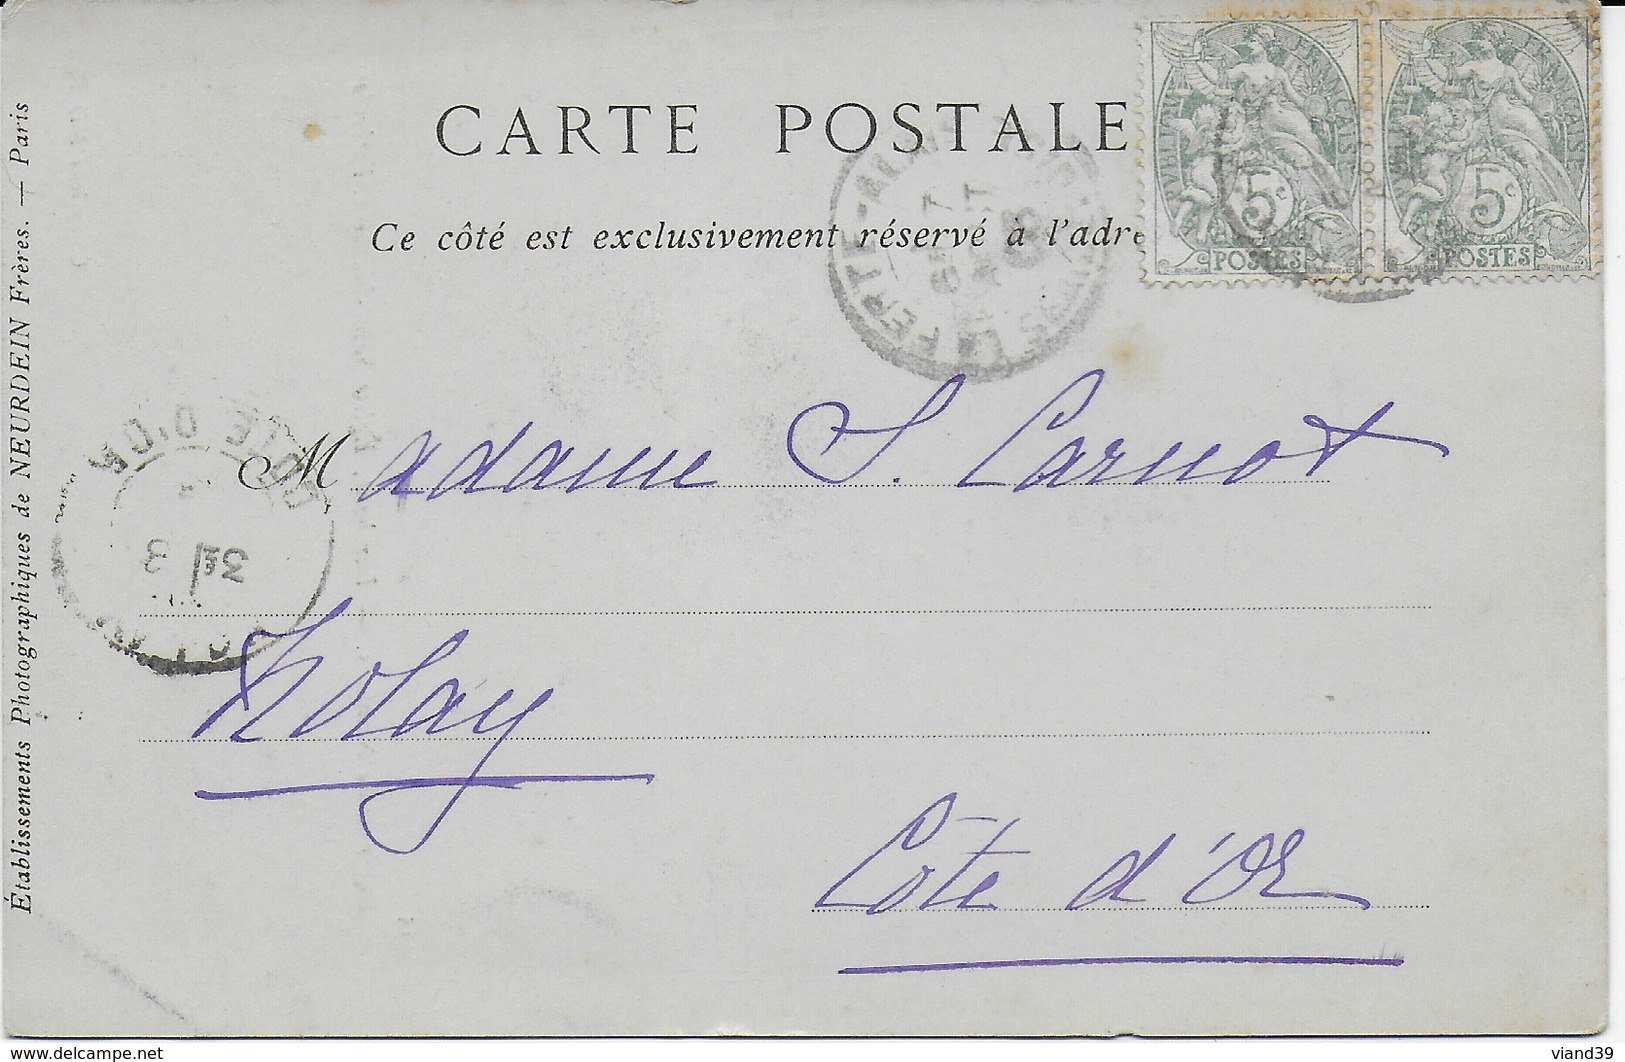 CARTE POSTALE
Ce côté est exclusivement réservé à l'adre
RÉPUBLIQUE FRANÇAISE
5c
POSTES
RÉPUBLIQUE FRANÇAISE
5c
POSTES
LA FERTE-ALAIS
Madame S. Carnot
CÔTE D'OR
Nolay
Côte d'Or
Établissements Photographiques de NEURDEIN Frères. — Paris
www.delcampe.net
viand39